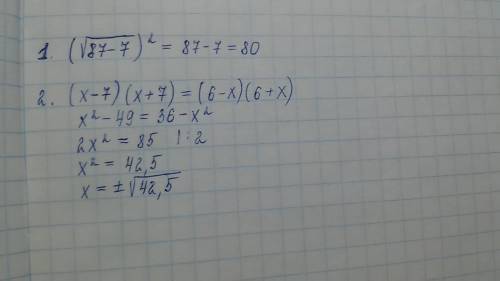 1. (√87-7)² = 87-7 = 80
2. (x-7)(x+7) = (6-x)(6+x)
x² - 49 = 36 - x²
2x² = 85 | : 2
x² = 42,5
x = ±√42,5